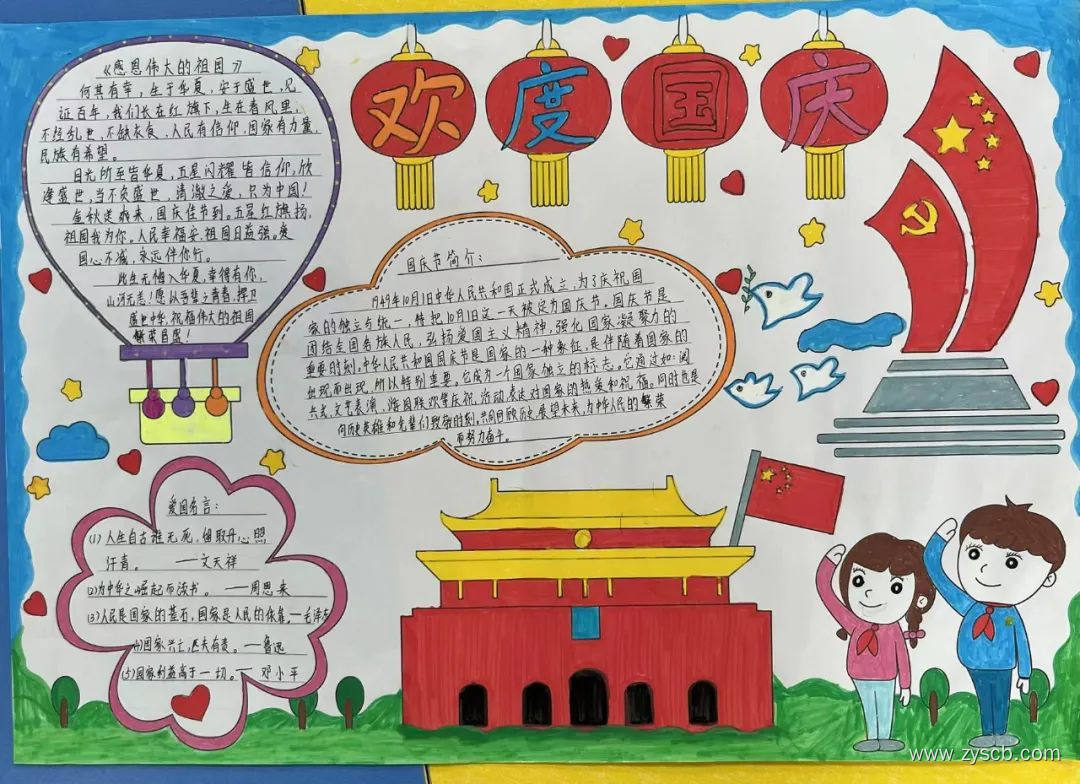 欢度国庆
《感恩伟大的祖国》
何其有幸，生于华夏，安于盛世，见
证百年，我们长在红旗下，生在春风里，
不经乱世，不缺衣食，人民有信仰，国家有力量，
民族有希望。
目光所至皆华夏，五星闪耀皆信仰，欣
逢盛世，当不负盛世，清澈之爱，只为中国！
金秋送爽来，国庆佳节到。五星红旗扬，
祖国我为你。人民幸福安，祖国日益强。爱
国心不减，永远伴你行。
此生无悔入华夏，幸得有你，
山河无恙！愿以吾辈之青春，捍卫
盛世中华，祝福伟大的祖国
繁荣昌盛！
国庆节简介：
1949年10月1日中华人民共和国正式成立，为了庆祝国
家的独立与统一，特把10月1日这一天被定为国庆节。国庆节是
团结全国各族人民，弘扬爱国主义精神，强化国家凝聚力的
重要时刻。中华人民共和国国庆节是国家的一种象征，是伴随着国家的
出现而出现，所以特别重要。它成为一个国家独立的标志。它通过如：阅
兵式、文艺表演、游园联欢等庆祝活动表达对国家的热爱和祝福。同时也是
向历史英雄和先辈们致敬的时刻。共同回顾历史，展望未来，为中华人民的繁荣
而努力奋斗。
爱国名言：
(1) 人生自古谁无死，留取丹心照
汗青。 ——文天祥
(2)为中华之崛起而读书。 ——周恩来
(3)人民是国家的基石，国家是人民的依靠。—毛泽东
(4)国家兴亡，匹夫有责。——鲁迅
(5)国家利益高于一切。— 邓小平
www.zyscb.com